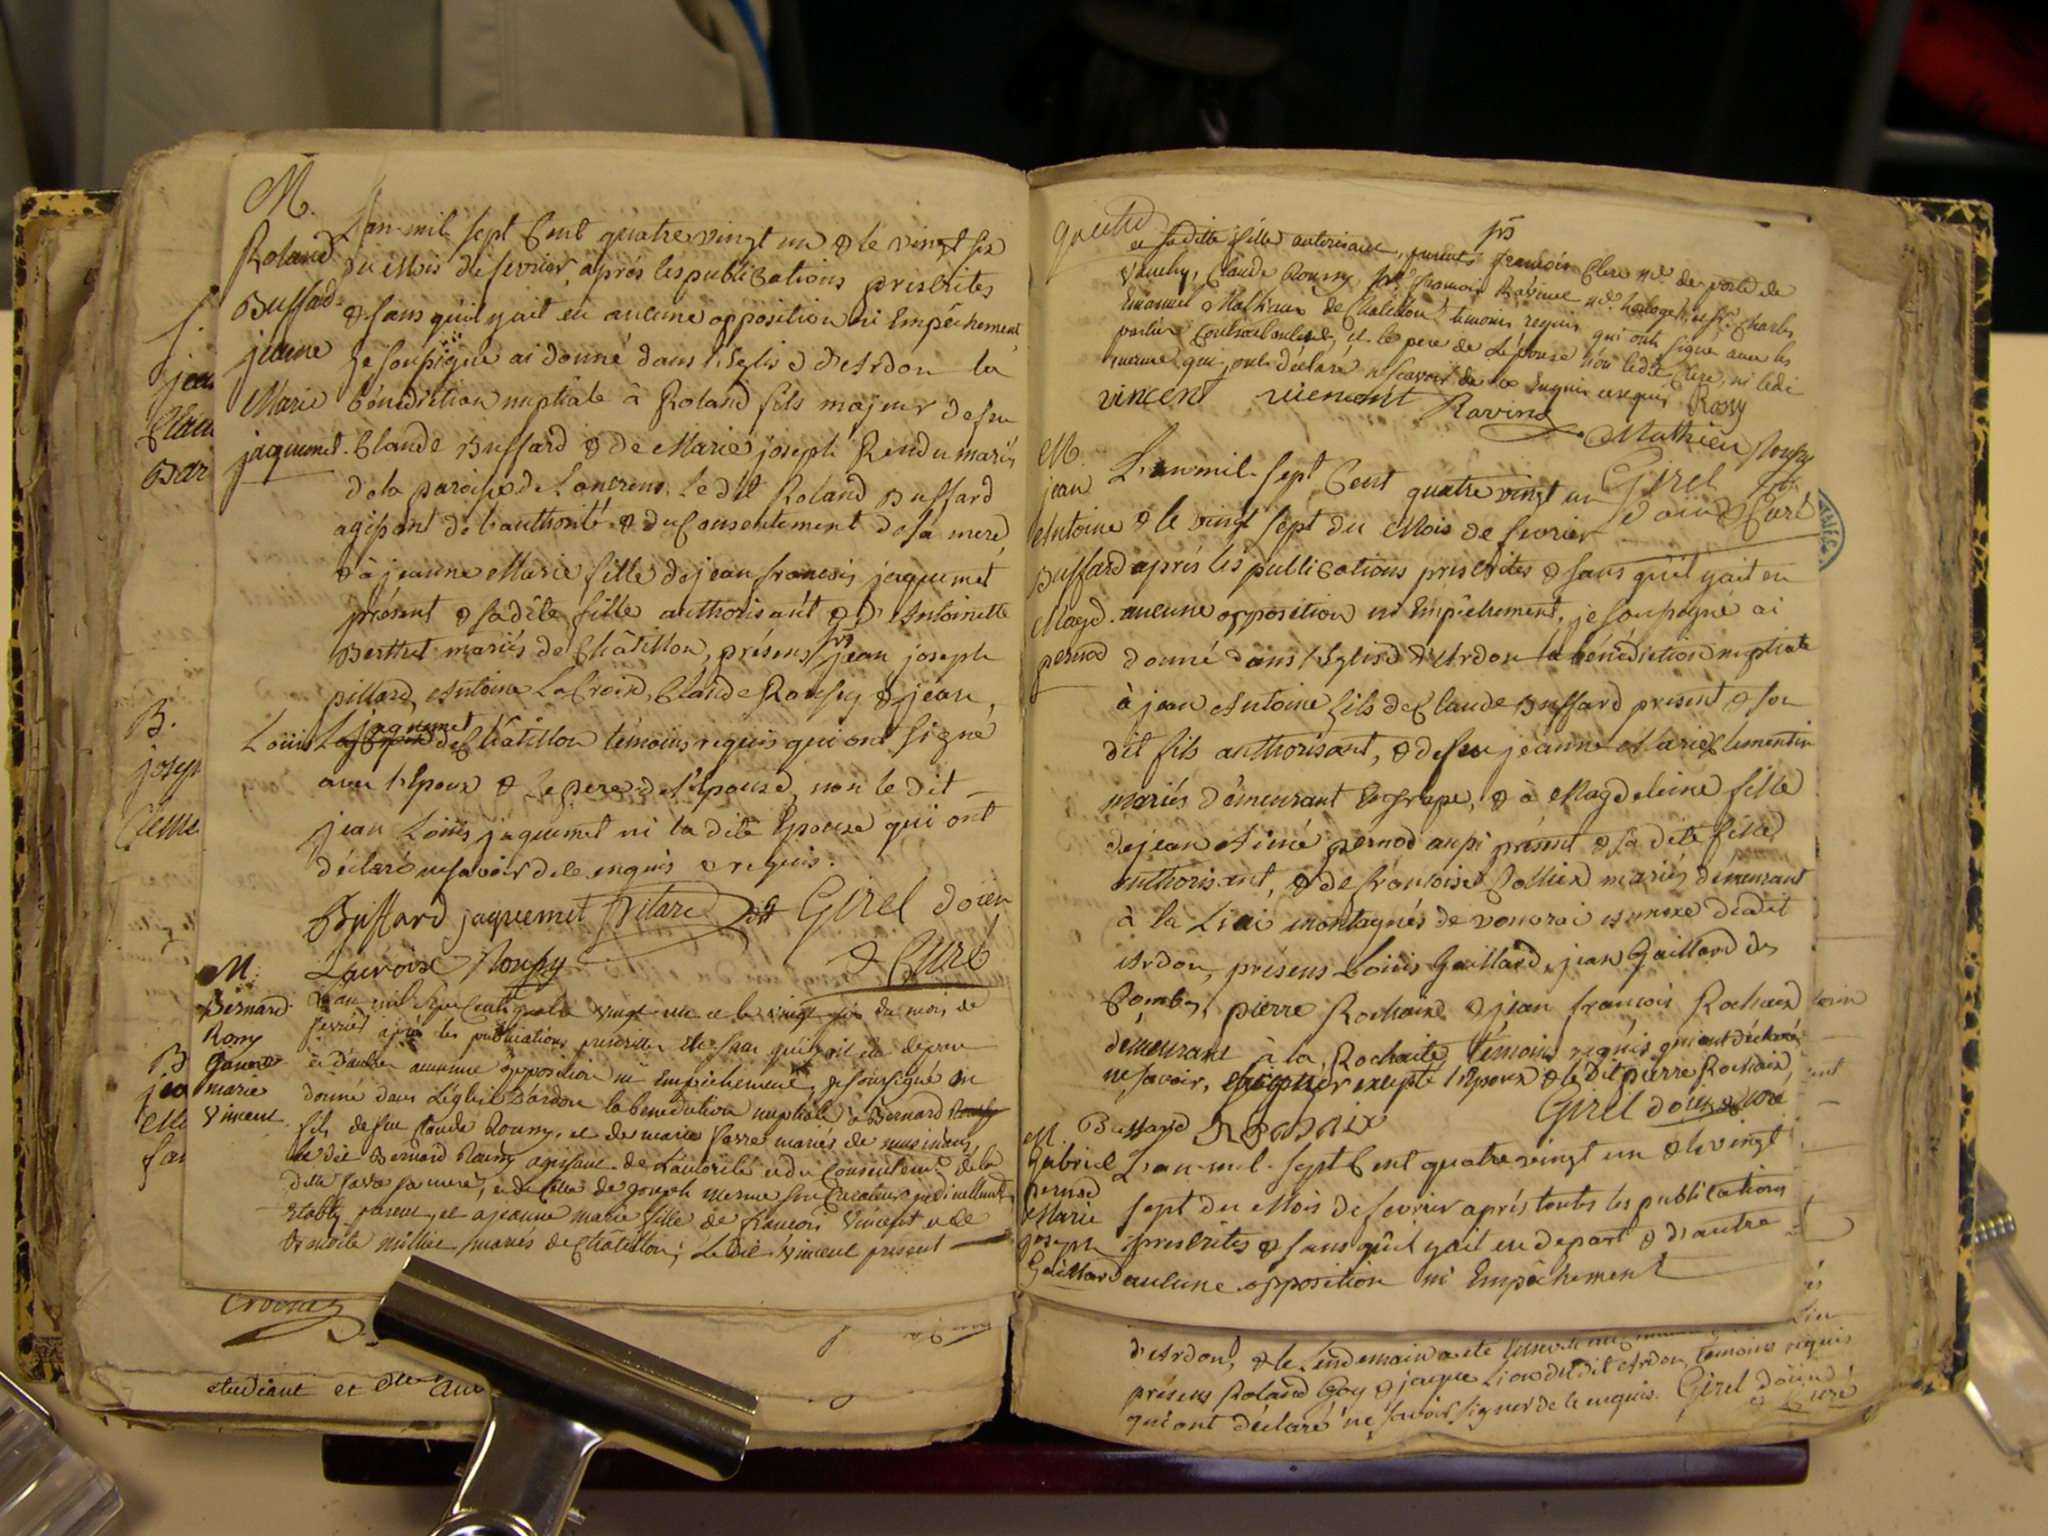 M.
Roland
Buffard
jeanne
Marie
jaquemet
L'an mil sept Cent quatre vingt un & le vingt six
du Mois de fevrier, aprés les publications prescrites
& sans qu'il y ait eu aucune opposition ni Empêchement
je soussigné ai donné dans l'Eglise d'Ardon la
bénédiction nuptiale à Roland fils majeur de feu
Claude Buffard & de Marie joseph Rendu mariés
de la paroisse de Lancrens. Le dit Roland Buffard
agissant de l'authorité & du Consentement de sa mere,
& à jeanne Marie fille de jean françois jaquemet
présent & sa dite fille authorisant & d'Antoinette
Berthet mariés de Châtillon, présens jean joseph
pillard, Antoine LaCroix, Claude Roussy & jean
Loüis jaquemet de Châtillon témoins requis qui ont signé
avec l'Epoux & le pere de l'Epouse, non le dit
jean Loüis jaquemet ni la dite Epouse qui ont
déclaré ne savoir de le enquis & requis.
Buffard jaquemet Pilard Girel doien
Lacroix Roussy & Curé
M.
Bernard
Rossy
jeanne
marie
Vincent
L'an mil Sept Cent quatre vingt un et le vingt six du mois de
fevrier aprés les publications prescrittes et sans qu'il y ait eu de part
et d'autre aucunne opposition ni Empêchement, je soussigné ai
donné dans L'église d'ardon la benediction nuptiale à Bernard
fils de feu Claude Roussy, et de marie favre mariés de
le dit Bernard Roussy agissant de L'autorité et du Consentement de la
ditte favre sa mere, et de Celle de joseph merme son Curateur
Etably, present, et a jeanne marie fille de francois Vincent et de
mariés de Chatillon; Le dit Vincent present
et sa ditte fille autorisant, presents francois Clerc de
Vouchy, Claude Roussy, francois Ravinet et Charles
Emanuel Mathieux de Chatillon temoins requis qui ont signé avec les
parties et le pere de L'épouse non ledit Clerc, ni ledit
mermet qui ont déclaré ne scavoir de ce Enquis et requis Rossy
vincent Ravinet Mathieu Roussy
Girel
doien & Curé
M.
jean
Antoine
Buffard
Magd.
pernod
L'an mil sept Cent quatre vingt un
& le vingt sept du Mois de fevrier
aprés les publications prescrites & sans qu'il y ait eu
aucune opposition ni Empêchement, je soussigné ai
donné dans l'Eglise d'Ardon la bénédiction nuptiale
à jean Antoine fils de Claude Buffard present & son
dit fils authorisant, & de feu jeanne Marie Clementin
mariés démeurant En grape, & à Magdeleine fille
de jean Aimé pernod aussi présent & sa dite fille
authorisant, & de françoise Collier mariés démeurant
à la montagnés de vouvrai annexe du dit
Ardon, présens Loüis Gaillard, jean Gaillard des
Combes, pierre Rochaix & jean françois Rochaix
démeurant à la Rochaite, témoins requis qui ont déclaré
ne savoir, excepté l'Epoux & le dit pierre Rochaix,
Girel doien & Curé
Buffard Rochaix
M.
Gabriel
pernod
Marie
joseph
Gaillard
L'an mil sept Cent quatre vingt un & le vingt
sept du Mois de fevrier aprés toutes les publications
prescrites & sans qu'il y ait eu de part & d'autre
aucune opposition ni Empêchement
d'Ardon, & le lendemain a été
présens Roland Goy & jaque du dit Ardon, témoins requis
qui ont déclaré ne savoir signer de le enquis. Girel doien
& Curé
etudiant et